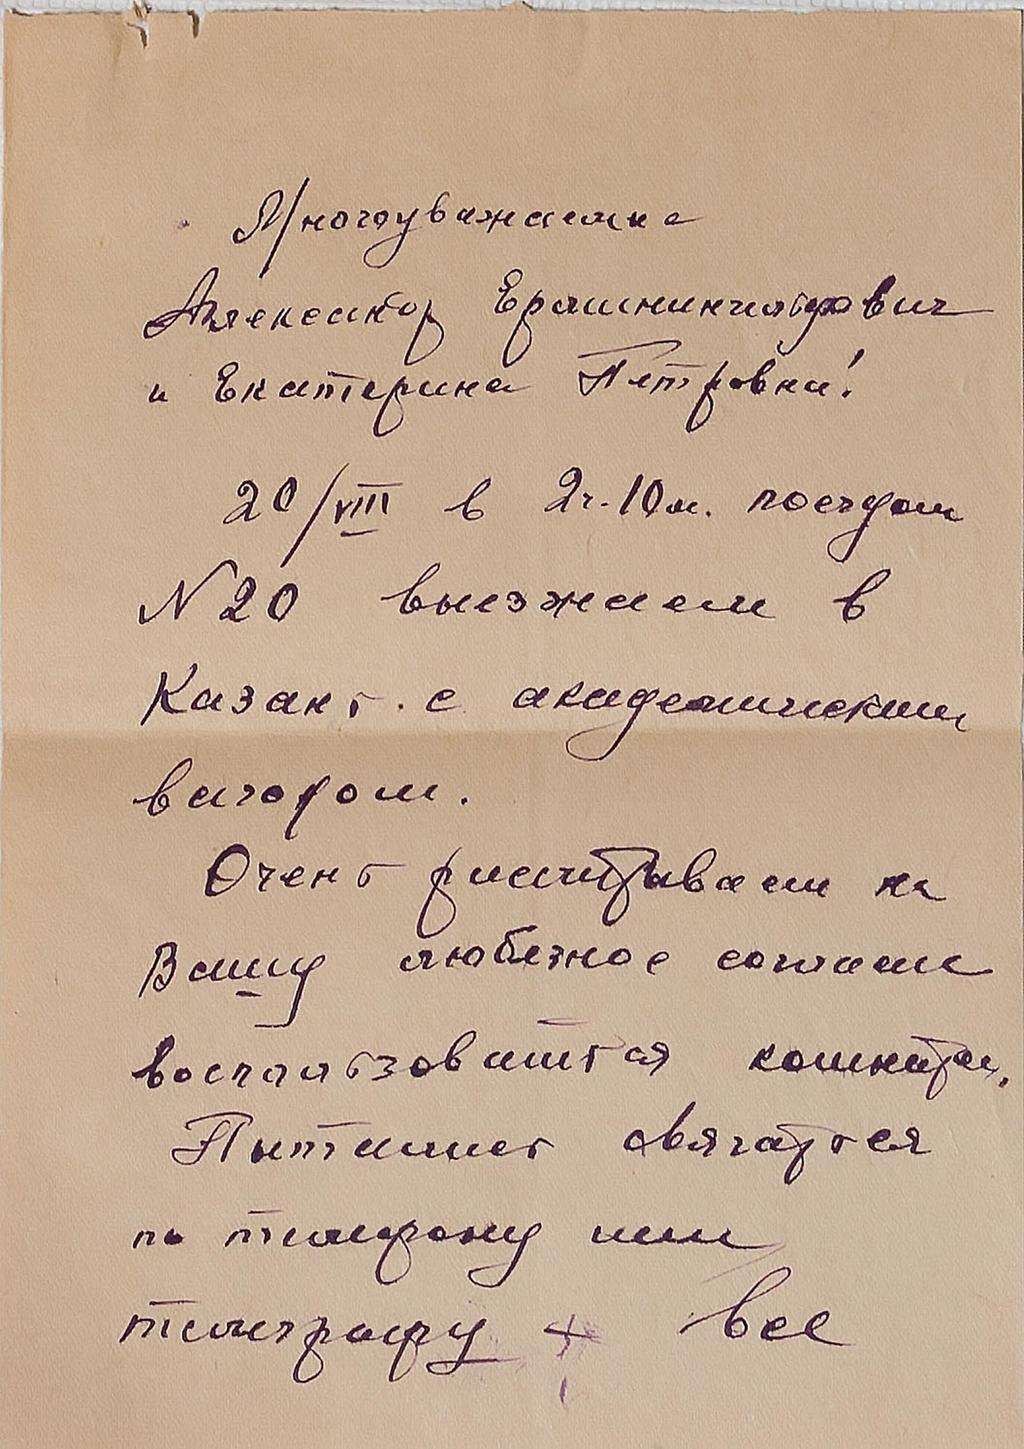 Многоуважаемые
Александр Ерминингельдович
и Екатерина Петровна!
20/VIII в 2ч.10м. поездом
N20 выезжаем в
Казань с академическим
вагоном.
Очень рассчитываем на
Вашу любезное согласие
воспользоваться комнатой.
Пытались связаться
по телефону или
телеграфу + все